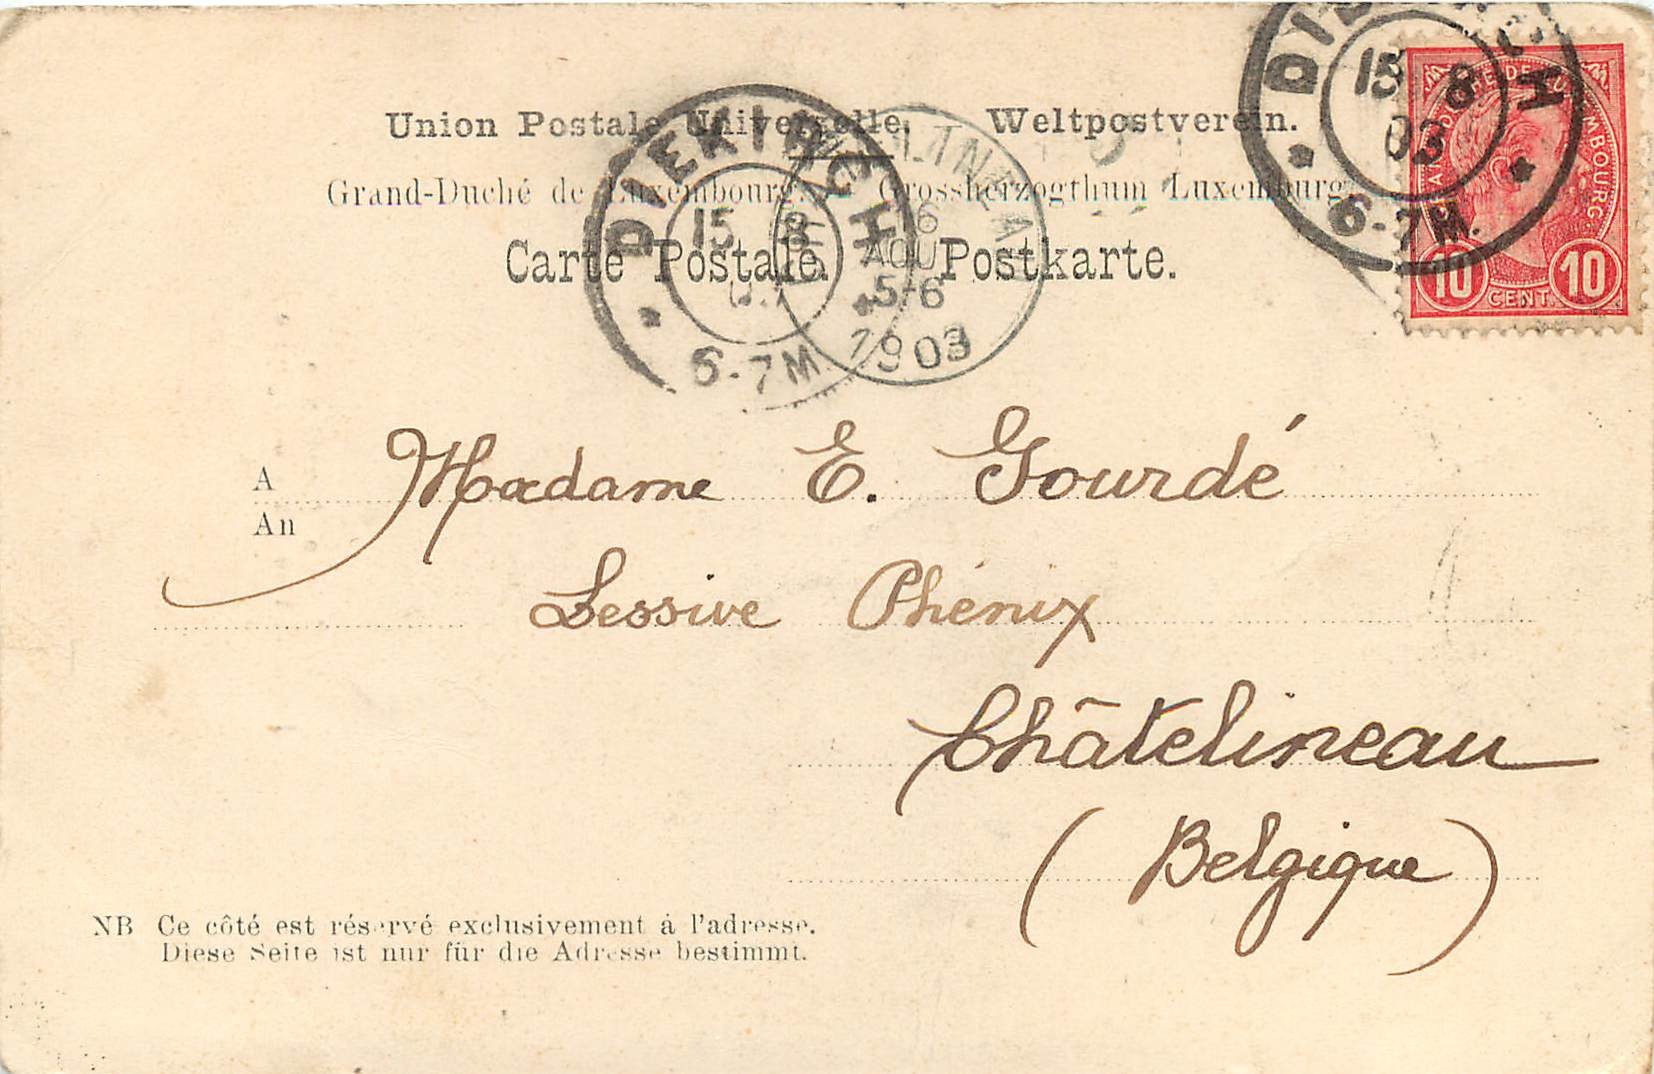 Union Postale Universelle. Weltpostverein.
Grand-Duché de Luxembourg. Grossherzogthum Luxemburg.
Carte Postale. Postkarte.
DIEKIRCH
15 8
6-7M.
CHATELINEAU
AOU
5-6
1903
DIEKIRCH
15 8
03
6-7M.
10 CENT. 10
A Madame E. Gourdé
An
Lessive Phénix
Châtelineau
(Belgique)
NB Ce côté est réservé exclusivement à l'adresse.
Diese Seite ist nur für die Adresse bestimmt.